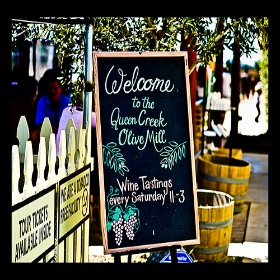 Welcome
to the
Queen Creek
Olive Mill
Wine Tastings
every Saturday 11-3
TOUR TICKETS
AVAILABLE INSIDE
WE ARE A TOBACCO
FREE FACILITY